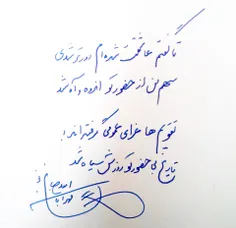 تا گفتم عاشقت شده‌ام دور تر شدی
سهم من از حضور تو اندوه و آه شد
تقویم ها عزای عمومی گرفته اند!
تاریخ بی حضور تو روزش سیاه شد